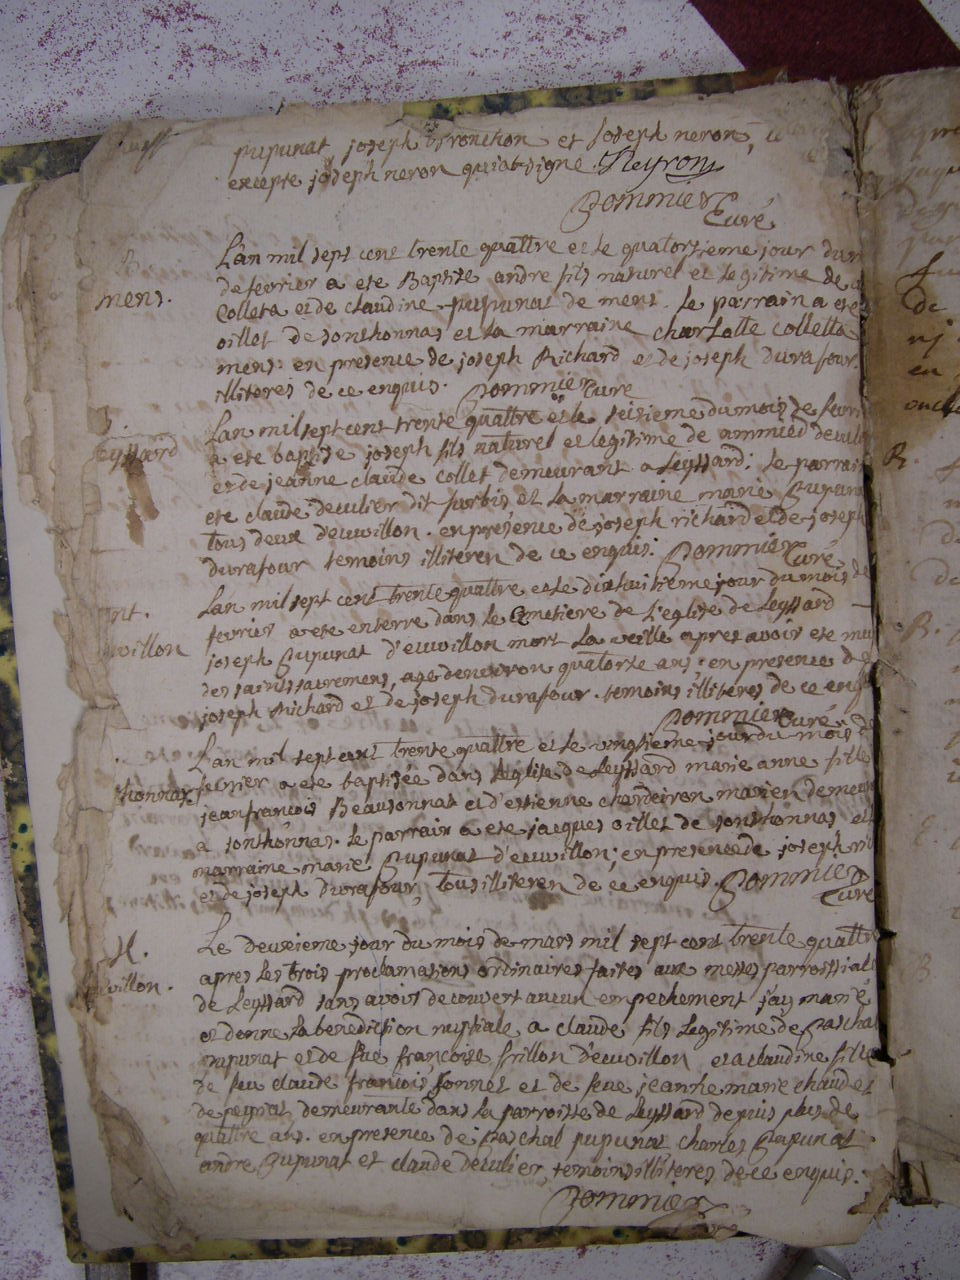 pupunat joseph et joseph neron,
excepte joseph neron qui a signe Neyron
Pommier
Curé
L'an mil sept cent trente quattre et le quatorsieme jour du
mens.
de fevrier a ete Baptise andre fils naturel et legitime de
Colleta et de claudine pupunat de mens. le parrain a ete
oillot de sonthonnas et la marraine charlotte colletta
mens: en presence de joseph Richard et de joseph durafour
illiteres de ce enquis. Pommier Cure
L'an mil sept cent trente quattre et le seisieme du mois de fevri
Leyssard
a ete baptise joseph fils naturel et legitime de ammied deculier
et de jeanne claude collet demeurant a Leyssard; le parrain
ete claude deculier dit et la marraine marie pupunat
tous deux d'euvillon. en presence de joseph richard et de joseph
durafour temoins illiteren de ce enquis: Pommier Curé
L'an mil sept cent trente quattre et le dixhuitieme jour du mois de
fevrier a ete enterre dans le Cemetiere de l'eglise de Leyssard
villon
joseph pupunat d'euvillon mort la veille apres avoir ete mu
des saints sacremens, age denviron quatorze ans; en presence de
joseph Richard et de joseph durafour. temoins illiteres de ce enq
Pommier Curé
L'an mil sept cent trente quattre et le vingtieme jour du mois de
fevrier a ete baptisée dans leglise de Leyssard marie anne fille
thonnax
jean francois Beausonnat et d'estienne chardeiron mariez demeur
a sonthonnas. le parrain a ete jacques oillet de sonthonnas et
marraine marie pupunat d'euvillon; en presence de joseph
et de joseph durafour, tous illiteren de ce enquis. Pommier
Curé
Le deuxieme jour du mois de mars mil sept cent trente quattre
apres les trois proclamations ordinaires faites aux messes parroissiale
villon.
de Leyssard sans avoir decouvert aucun empechement j'ay marié
et donné la benediction nuptiale a claude fils legitime de paschal
pupunat et de feue françoise frillon d'euvillon et a claudine fille
de feu claude francois sonnet et de feue jeanne marie chaudet
de peyriat demeurante dans la parroisse de Leyssard depuis plus de
quattre ans. en presence de paschal pupunat charles pupunat
andre pupunat et claude deculier temoins illiteres de ce enquis.
Pommier